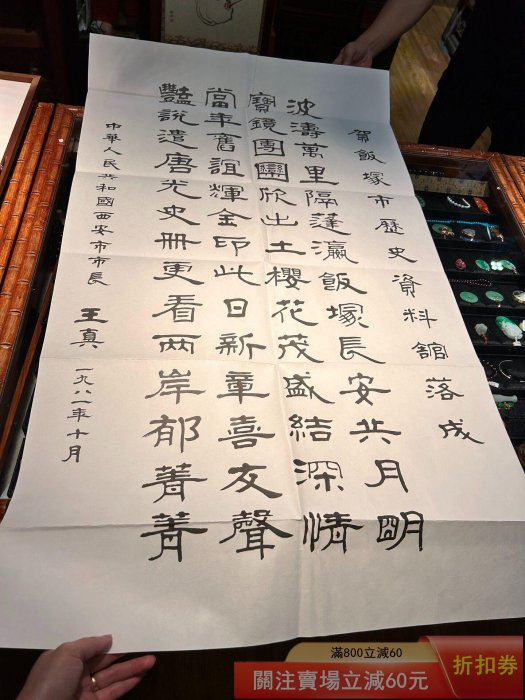 賀飯塚市歷史資料館落成
波濤萬里隔蓬瀛飯塚長安共月明
寶鏡團圞欣出土櫻花茂盛結深情
當年舊誼輝金印此日新章喜友聲
豔說遣唐光史冊更看兩岸郁菁菁
中華人民共和國西安市市長 王真 一九八一年十月
滿800立減60
關注賣場立減60元
折扣券